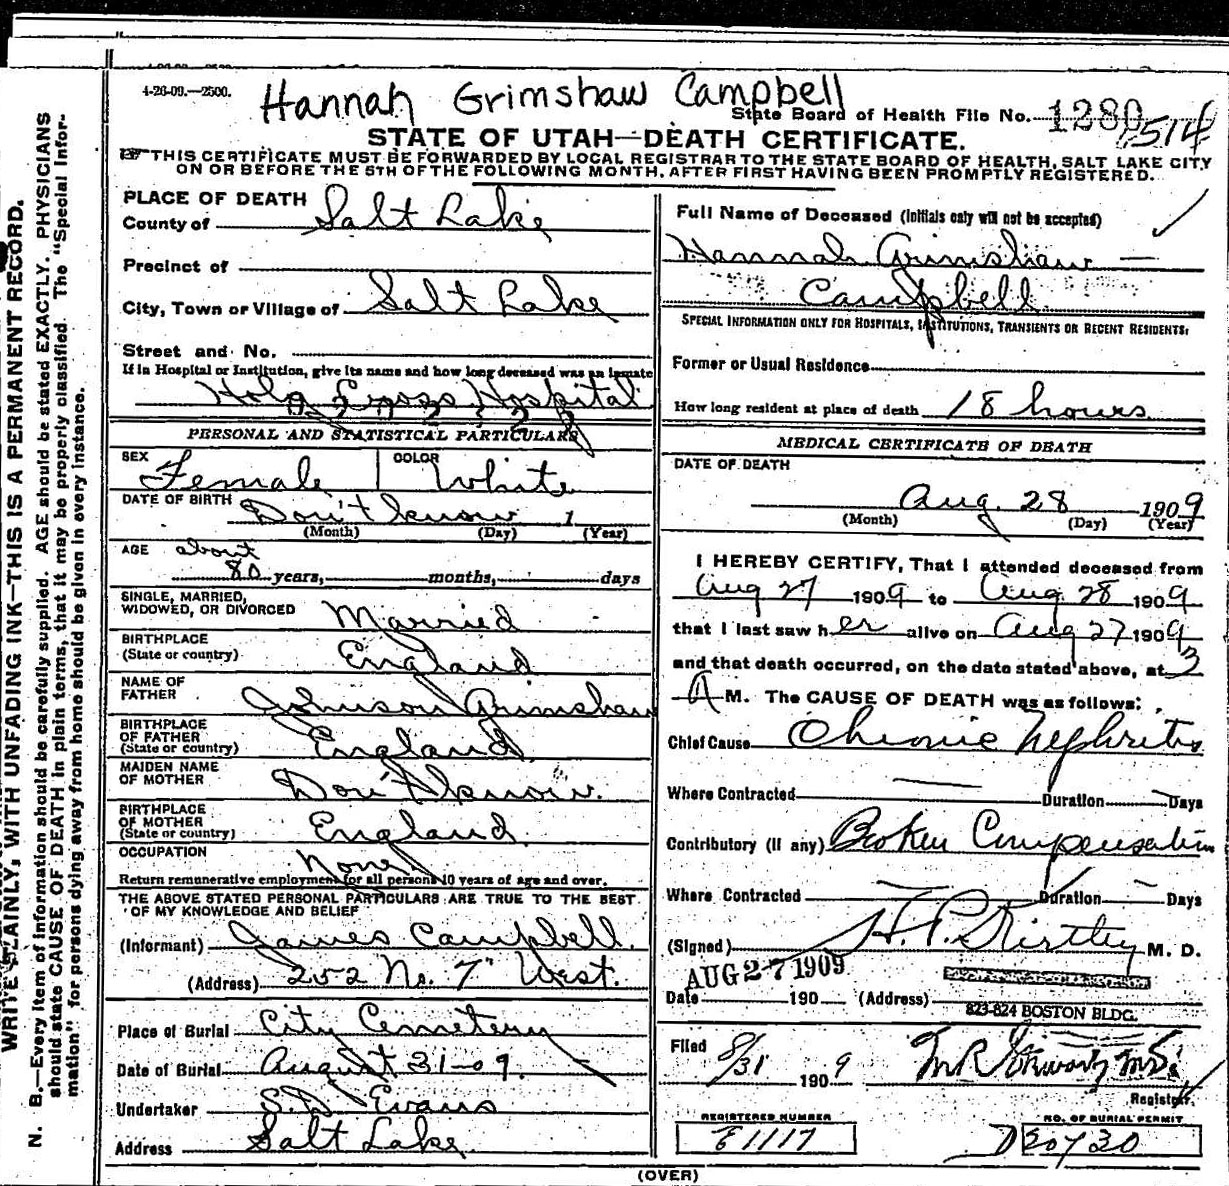 4-26-09.—2500.
Hannah Grimshaw Campbell
State Board of Health File No. 1280
1514
STATE OF UTAH—DEATH CERTIFICATE.
THIS CERTIFICATE MUST BE FORWARDED BY LOCAL REGISTRAR TO THE STATE BOARD OF HEALTH, SALT LAKE CITY
ON OR BEFORE THE 5TH OF THE FOLLOWING MONTH, AFTER FIRST HAVING BEEN PROMPTLY REGISTERED.
WRITE PLAINLY, WITH UNFADING INK—THIS IS A PERMANENT RECORD.
N. B.—Every item of information should be carefully supplied. AGE should be stated EXACTLY. PHYSICIANS
should state CAUSE OF DEATH in plain terms, that it may be properly classified. The "Special Infor-
mation" for persons dying away from home should be given in every instance.
PLACE OF DEATH
County of Salt Lake
Precinct of
City, Town or Village of Salt Lake
Street and No.
If in Hospital or Institution, give its name and how long deceased was an inmate
Holy Cross Hospital
PERSONAL AND STATISTICAL PARTICULARS
SEX Female COLOR White
DATE OF BIRTH Don't know 1
(Month) (Day) (Year)
AGE about
80 years, months, days
SINGLE, MARRIED,
WIDOWED, OR DIVORCED Married
BIRTHPLACE
(State or country) England
NAME OF
FATHER Johnson Grimshaw
BIRTHPLACE
OF FATHER
(State or country) England
MAIDEN NAME
OF MOTHER Don't know.
BIRTHPLACE
OF MOTHER
(State or country) England
OCCUPATION None
Return remunerative employment for all persons 10 years of age and over.
THE ABOVE STATED PERSONAL PARTICULARS ARE TRUE TO THE BEST
OF MY KNOWLEDGE AND BELIEF
(Informant) James Campbell.
(Address) 252 No. 7" West.
Place of Burial City Cemetery
Date of Burial August 31-09.
Undertaker S.D. Evans
Address Salt Lake
Full Name of Deceased (Initials only will not be accepted)
Hannah Grimshaw
Campbell
SPECIAL INFORMATION ONLY FOR HOSPITALS, INSTITUTIONS, TRANSIENTS OR RECENT RESIDENTS:
Former or Usual Residence
How long resident at place of death 18 hours
MEDICAL CERTIFICATE OF DEATH
DATE OF DEATH
Aug. 28 1909
(Month) (Day) (Year)
I HEREBY CERTIFY, That I attended deceased from
Aug 27 1909 to Aug 28 1909
that I last saw her alive on Aug 27 1909
and that death occurred, on the date stated above, at 3
A M. The CAUSE OF DEATH was as follows:
Chief Cause Chronic Nephritis
Where Contracted Duration Days
Contributory (if any) Broken Compensation
Where Contracted Duration Days
(Signed) H. P. Kirtley M. D.
AUG 27 1909
Date 190 (Address)
823-824 BOSTON BLDG.
Filed 8/31 1909
Registrar.
REGISTERED NUMBER
E1117
NO. OF BURIAL PERMIT
(OVER)